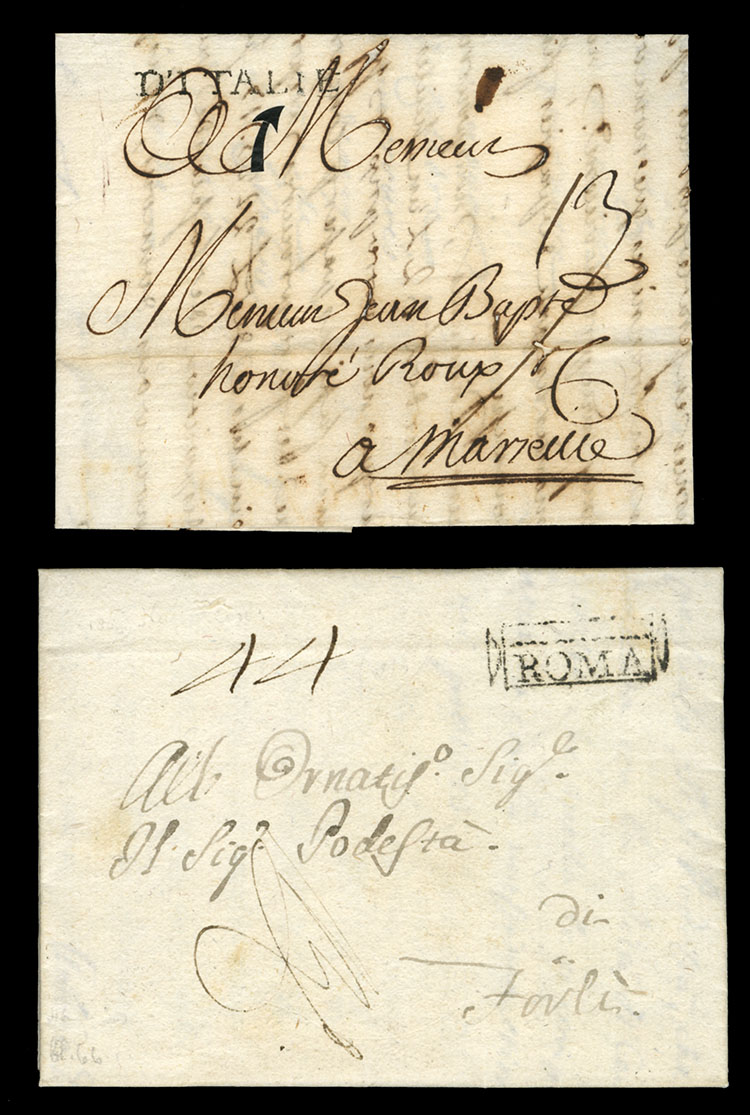 D'ITALIE
A Messieurs
13
Messieurs Jean Bapte
honoré Roux
a Marseille
44
ROMA
All' Ornatis.o Sigr.
Il Sigr. Podestà.
di
Forlì.